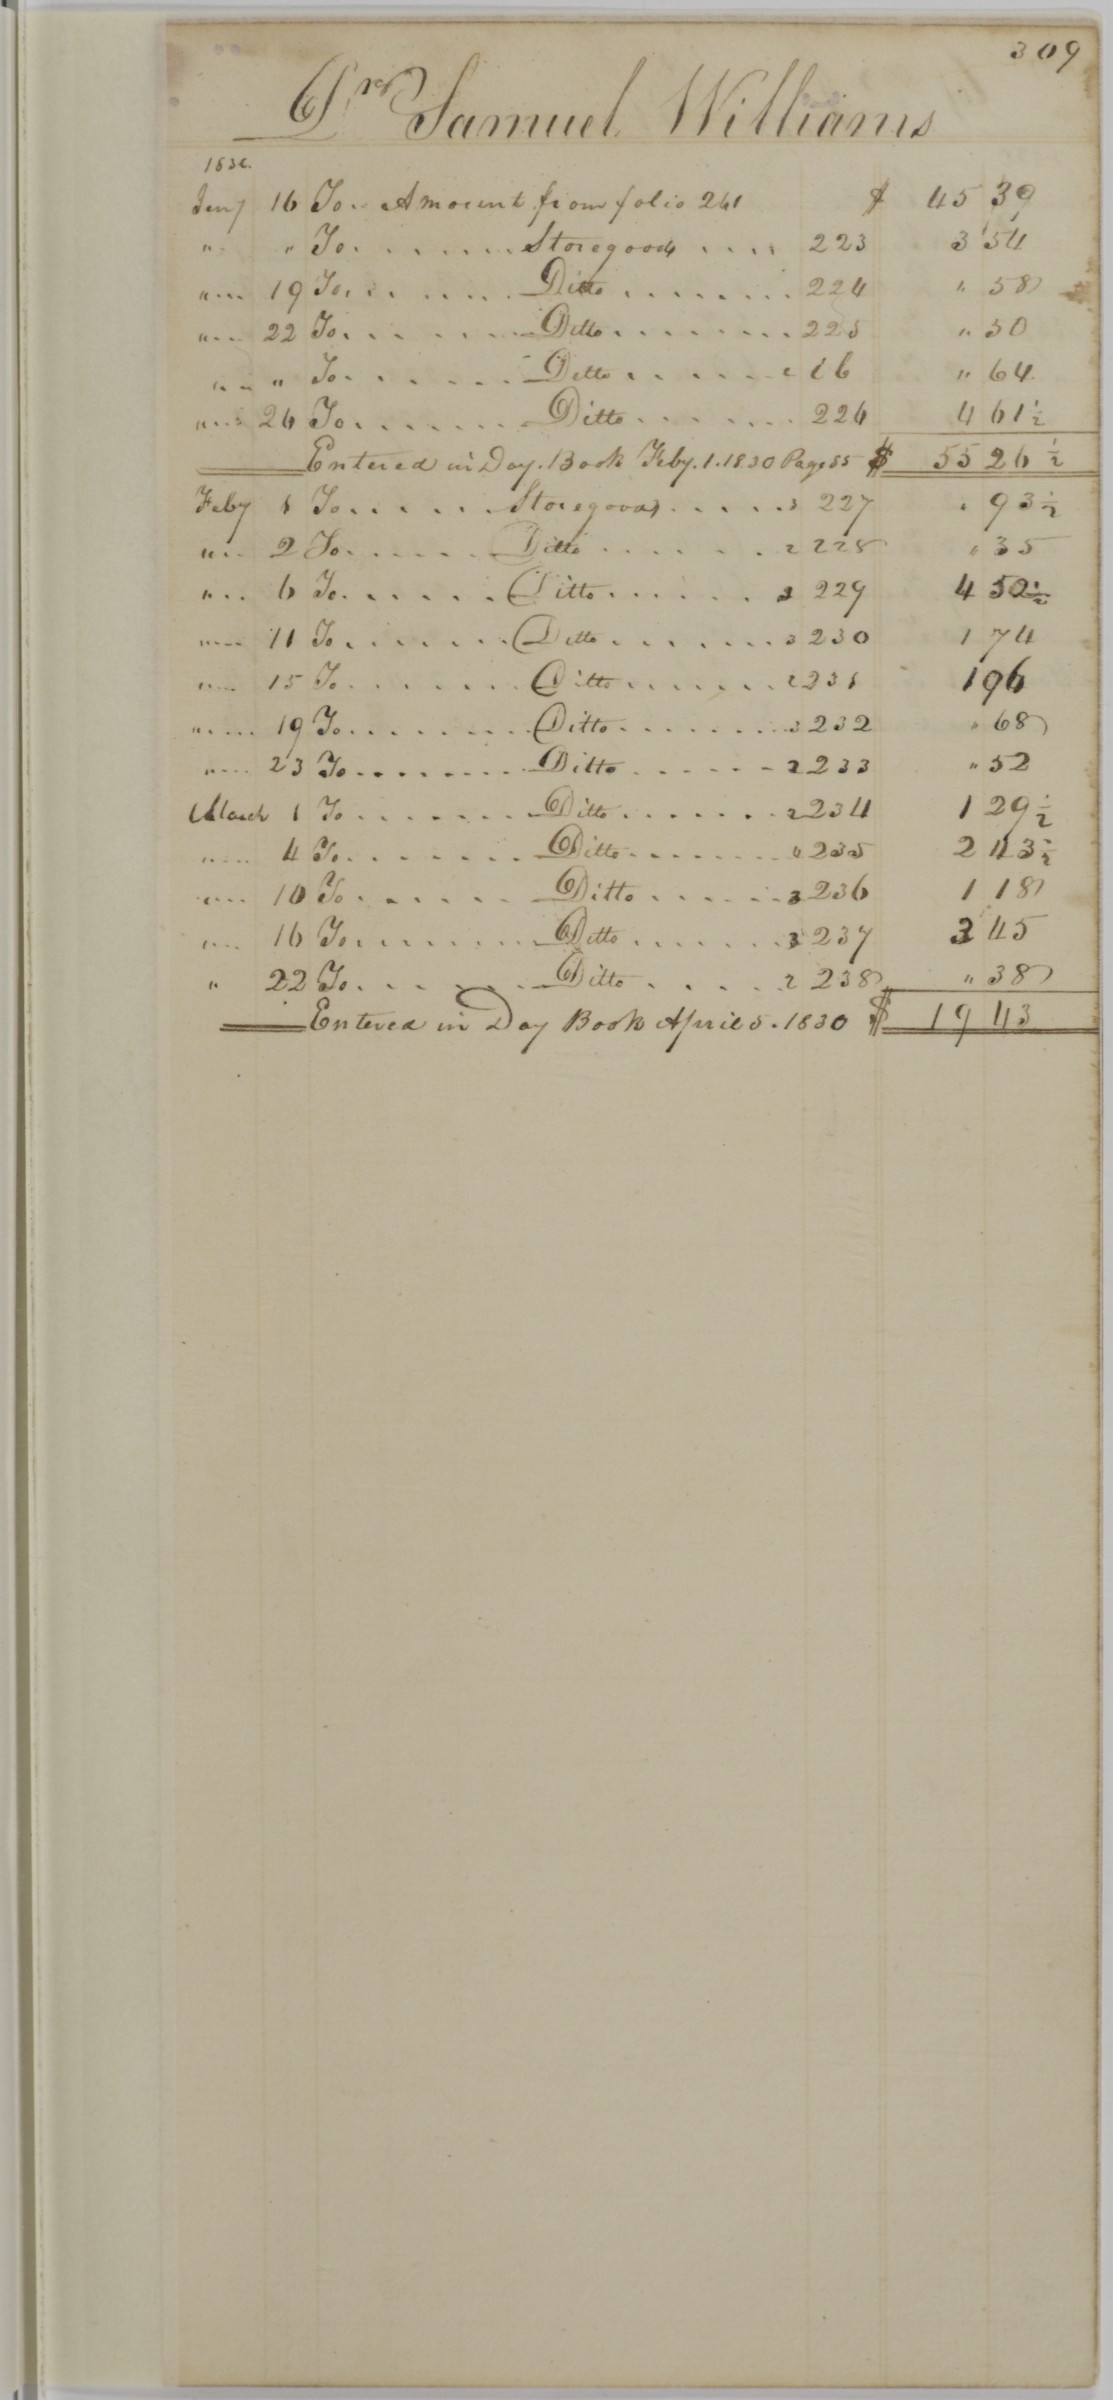 309
Dr Samuel Williams
1830.
Jany 16 To .. Amount from folio 261 $ 45 39
" " To . . . . . . . Storegoods . . . . 223 3 54
" 19 To . . . . . . . Ditto . . . . . . . . 224 " 58
" 22 To . . . . . . . Ditto . . . . . . . . 225 " 50
" " To . . . . . . . Ditto . . . . . . . ib " 64
" 26 To . . . . . . . Ditto . . . . . . . 226 4 61½
Entered in Day. Book Feby. 1. 1830 Page 55 $ 55 26½
Feby 1 To . . . . . . Storegoods . . . . . 227 " 93½
" 2 To . . . . . . Ditto . . . . . . . 228 " 35
" 6 To . . . . . . Ditto . . . . . . 229 4 50½
" 11 To . . . . . . . Ditto . . . . . . . 230 1 74
" 15 To . . . . . . . Ditto . . . . . . . 231 1 96
" 19 To . . . . . . . Ditto . . . . . . . 232 " 68
" 23 To . . . . . . . Ditto . . . . . . 233 " 52
March 1 To . . . . . . . Ditto . . . . . . . 234 1 29½
" 4 To . . . . . . . Ditto . . . . . . . 235 2 43½
" 10 To . . . . . . Ditto . . . . . . 236 1 18
" 16 To . . . . . . . Ditto . . . . . . . 237 3 45
" 22 To . . . . . . Ditto . . . . . 238 " 38
Entered in Day Book April 5. 1830 $ 19 43